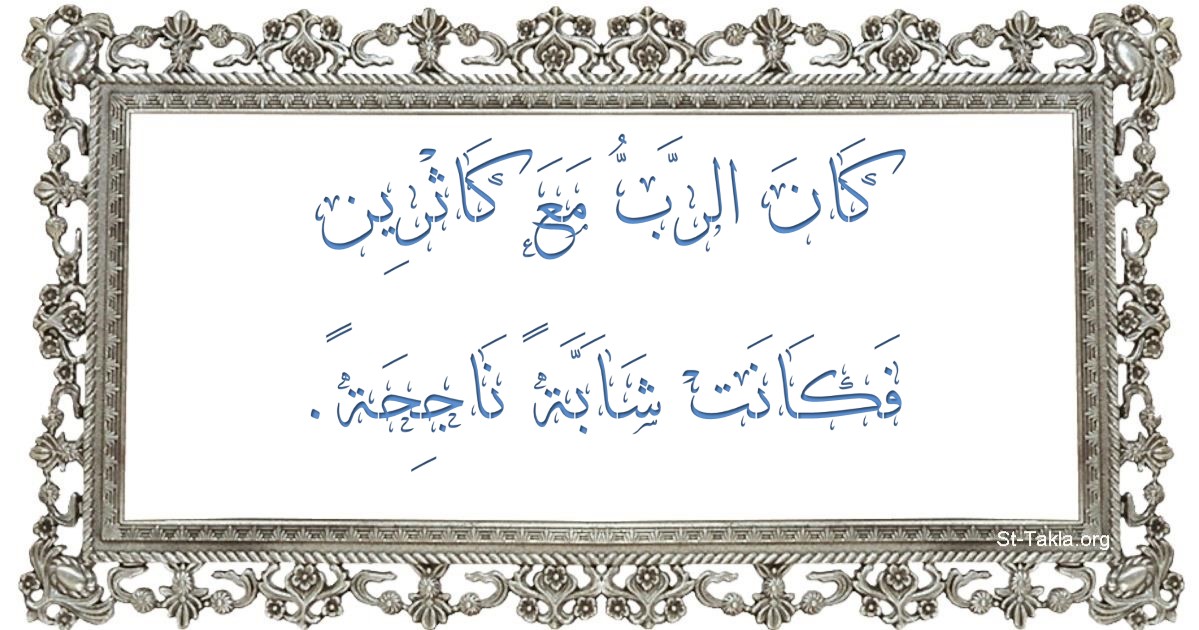 كَانَ الرَّبُّ مَعَ كَاثْرِين
فَكَانَتْ شَابَّةً نَاجِحَةً.
St-Takla.org